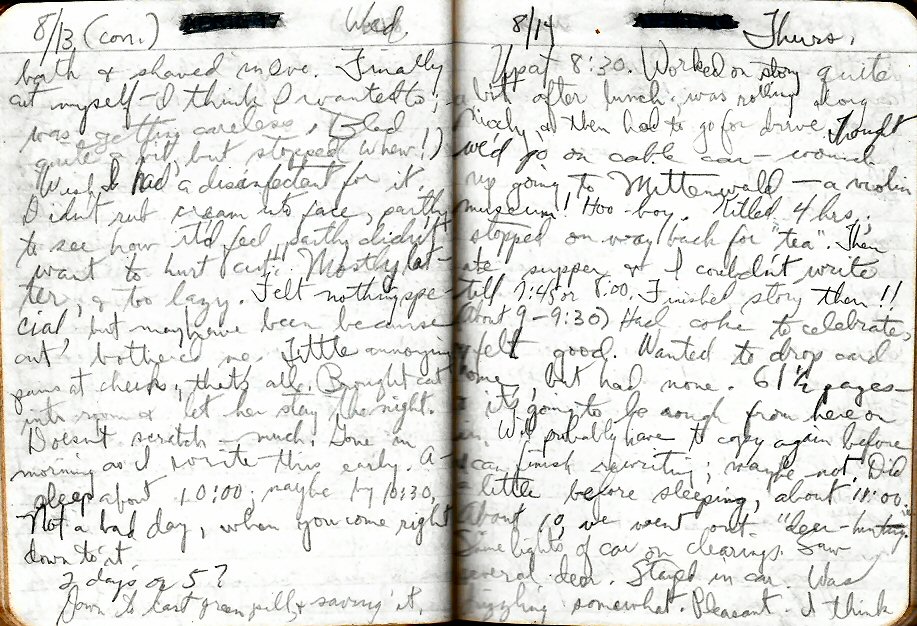 8/13 (con.) Wed.
bath & shaved move. Finally
cut myself - I think I wanted to;
was getting careless. Bled
quite a bit, but stopped. Whew!)
Wish I had a disinfectant for it.
Didn't rub cream into face, partly
to see how it'd feel, partly didn't
want to hurt cut. Mostly lat-
ter, & too lazy. Felt nothing spe-
cial, but may have been because
cut bothered me. Little annoying
pains at cheek, that's all. Brought cat
into room & let her stay the night.
Doesn't scratch - much. Gone in
morning as I write this early. A-
sleep about 10:00, maybe by 10:30.
Not a bad day, when you come right
down to it.
2 days or 5?
Down to last green pill, & saving it.
8/14 Thurs.
Up at 8:30. Worked on story quite
a bit after lunch, was rolling along
nicely, & then had to go for drive. Thought
we'd go on cable car - wound
up going to Mittenwald - a violin
museum! Hoo-boy. Killed 4 hrs.;
stopped on way back for "tea". Then
ate supper & I couldn't write
till 7:45 or 8:00. Finished story then!!
(About 9-9:30) Had coke to celebrate,
& felt good. Wanted to drop card
home, but had none. 61 1/2 pages -
& it's going to be rough from here on
in. Will probably have to copy again before
I can finish rewriting; maybe not. Did
a little before sleeping, about 11:00.
About 10, we went out "deer-hunting."
Shine lights of car on clearings. Saw
several deer. Stayed in car. Was
drizzling somewhat. Pleasant. I think